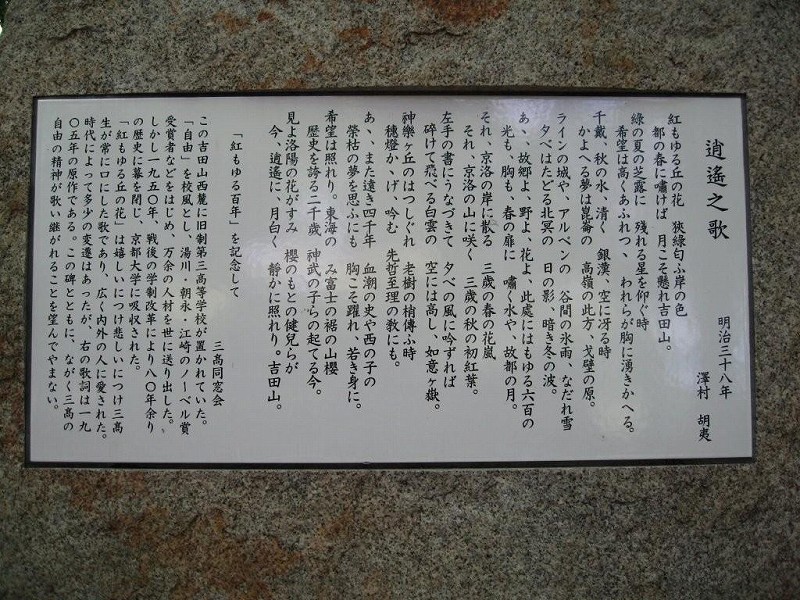 逍遙之歌
明治三十八年
澤村 胡夷
紅もゆる丘の花 狹綠匂ふ岸の色
都の春に嘯けば 月こそ懸れ吉田山。
綠の夏の芝露に 殘れる星を仰ぐ時
希望は高くあふれつゝ われらが胸に湧きかへる。
千載、秋の水、清く 銀漢、空に冴る時
かよへる夢は崑崙の 高嶺の此方、戈壁の原。
ラインの城や、アルペンの 谷間の氷雨、なだれ雪
夕べはたどる北冥の 日の影、暗き冬の波。
あゝ、故郷よ、野よ、花よ、此處にはもゆる六百の
光も、胸も、春の扉に 嘯く水や、故都の月。
それ、京洛の岸に散る 三歳の春の花嵐
それ、京洛の山に咲く 三歳の秋の初紅葉。
左手の書にうなづきて 夕べの風に吟ずれば
碎けて飛べる白雲の 空には高し、如意ヶ嶽。
神樂ヶ丘のはつしぐれ 老樹の梢傳ふ時
穗燈かゝげ、吟む 先哲至理の敎にも。
あゝ、また遠き四千年 血潮の史や西の子の
榮枯の夢を思ふにも 胸こそ躍れ、若き身に。
希望は照れり。東海の み富士の裾の山櫻
歷史を誇る二千歲 神武の子らの起てる今。
見よ洛陽の花がすみ 櫻のもとの健兒らが
今、逍遙に、月白く 靜かに照れり。吉田山。
「紅もゆる百年」を記念して
三高同窓会
この吉田山西麓に旧制第三高等学校が置かれていた。
「自由」を校風とし、湯川・朝永・江崎のノーベル賞
受賞者などをはじめ、万余の人材を世に送り出した。
しかし一九五〇年、戦後の学制改革により八〇年余り
の歴史に幕を閉じ、京都大学に吸収された。
「紅もゆる丘の花」は嬉しいにつけ悲しいにつけ三高
生が常に口にした歌であり、広く内外の人に愛された。
時代によって多少の変遷はあったが、右の歌詞は一九
〇五年の原作である。この碑とともに、ながく三高の
自由の精神が歌い継がれることを望んでやまない。